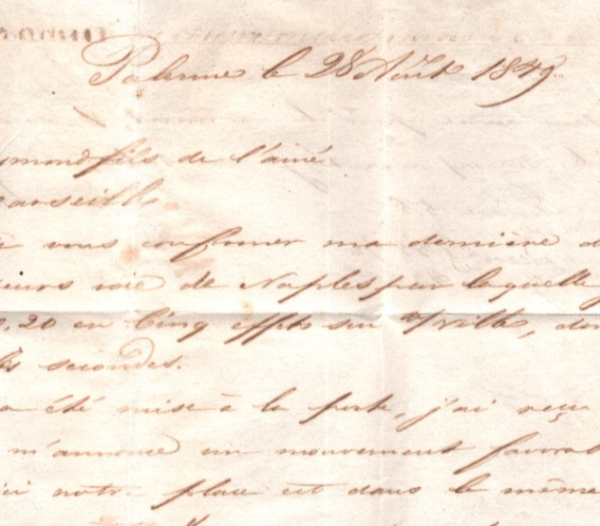 Palerme le 28 Août 1849.
fils de l'ainé
Marseille
vous confirmer ma dernière
voie de Naples par laquelle
20 en Cinq effets sur V/ville,
secondes.
a été mise à la poste, j'ai reçu
m'annonce un mouvement
notre place est dans le même